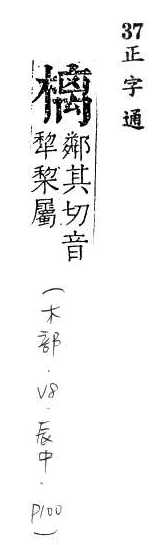 37 正字通
樆
鄰其切音
犂棃屬
(木部.V8.辰中.P100)